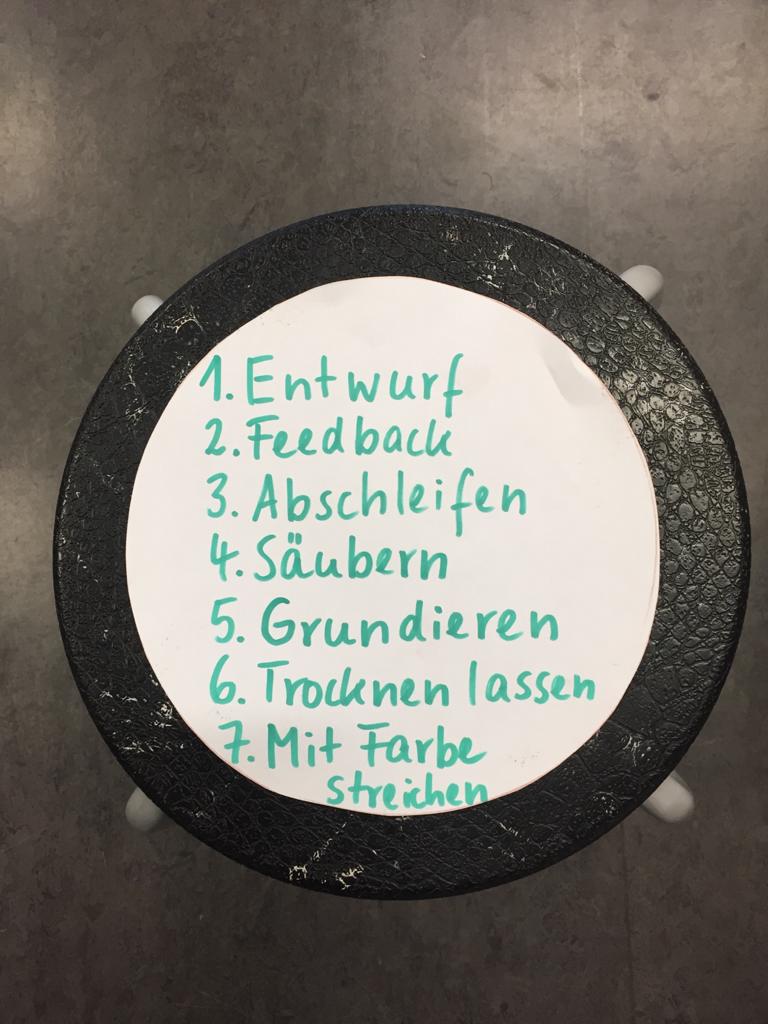 1. Entwurf
2. Feedback
3. Abschleifen
4. Säubern
5. Grundieren
6. Trocknen lassen
7. Mit Farbe
streichen